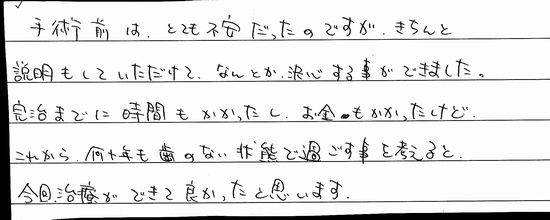 手術前は、とても不安だったのですが、きちんと
説明もしていただけて、なんとか決心する事ができました。
完治までに時間もかかったし、お金もかかったけど、
これから、何十年も歯のない状態で過ごす事を考えると、
今回治療ができて良かったと思います。